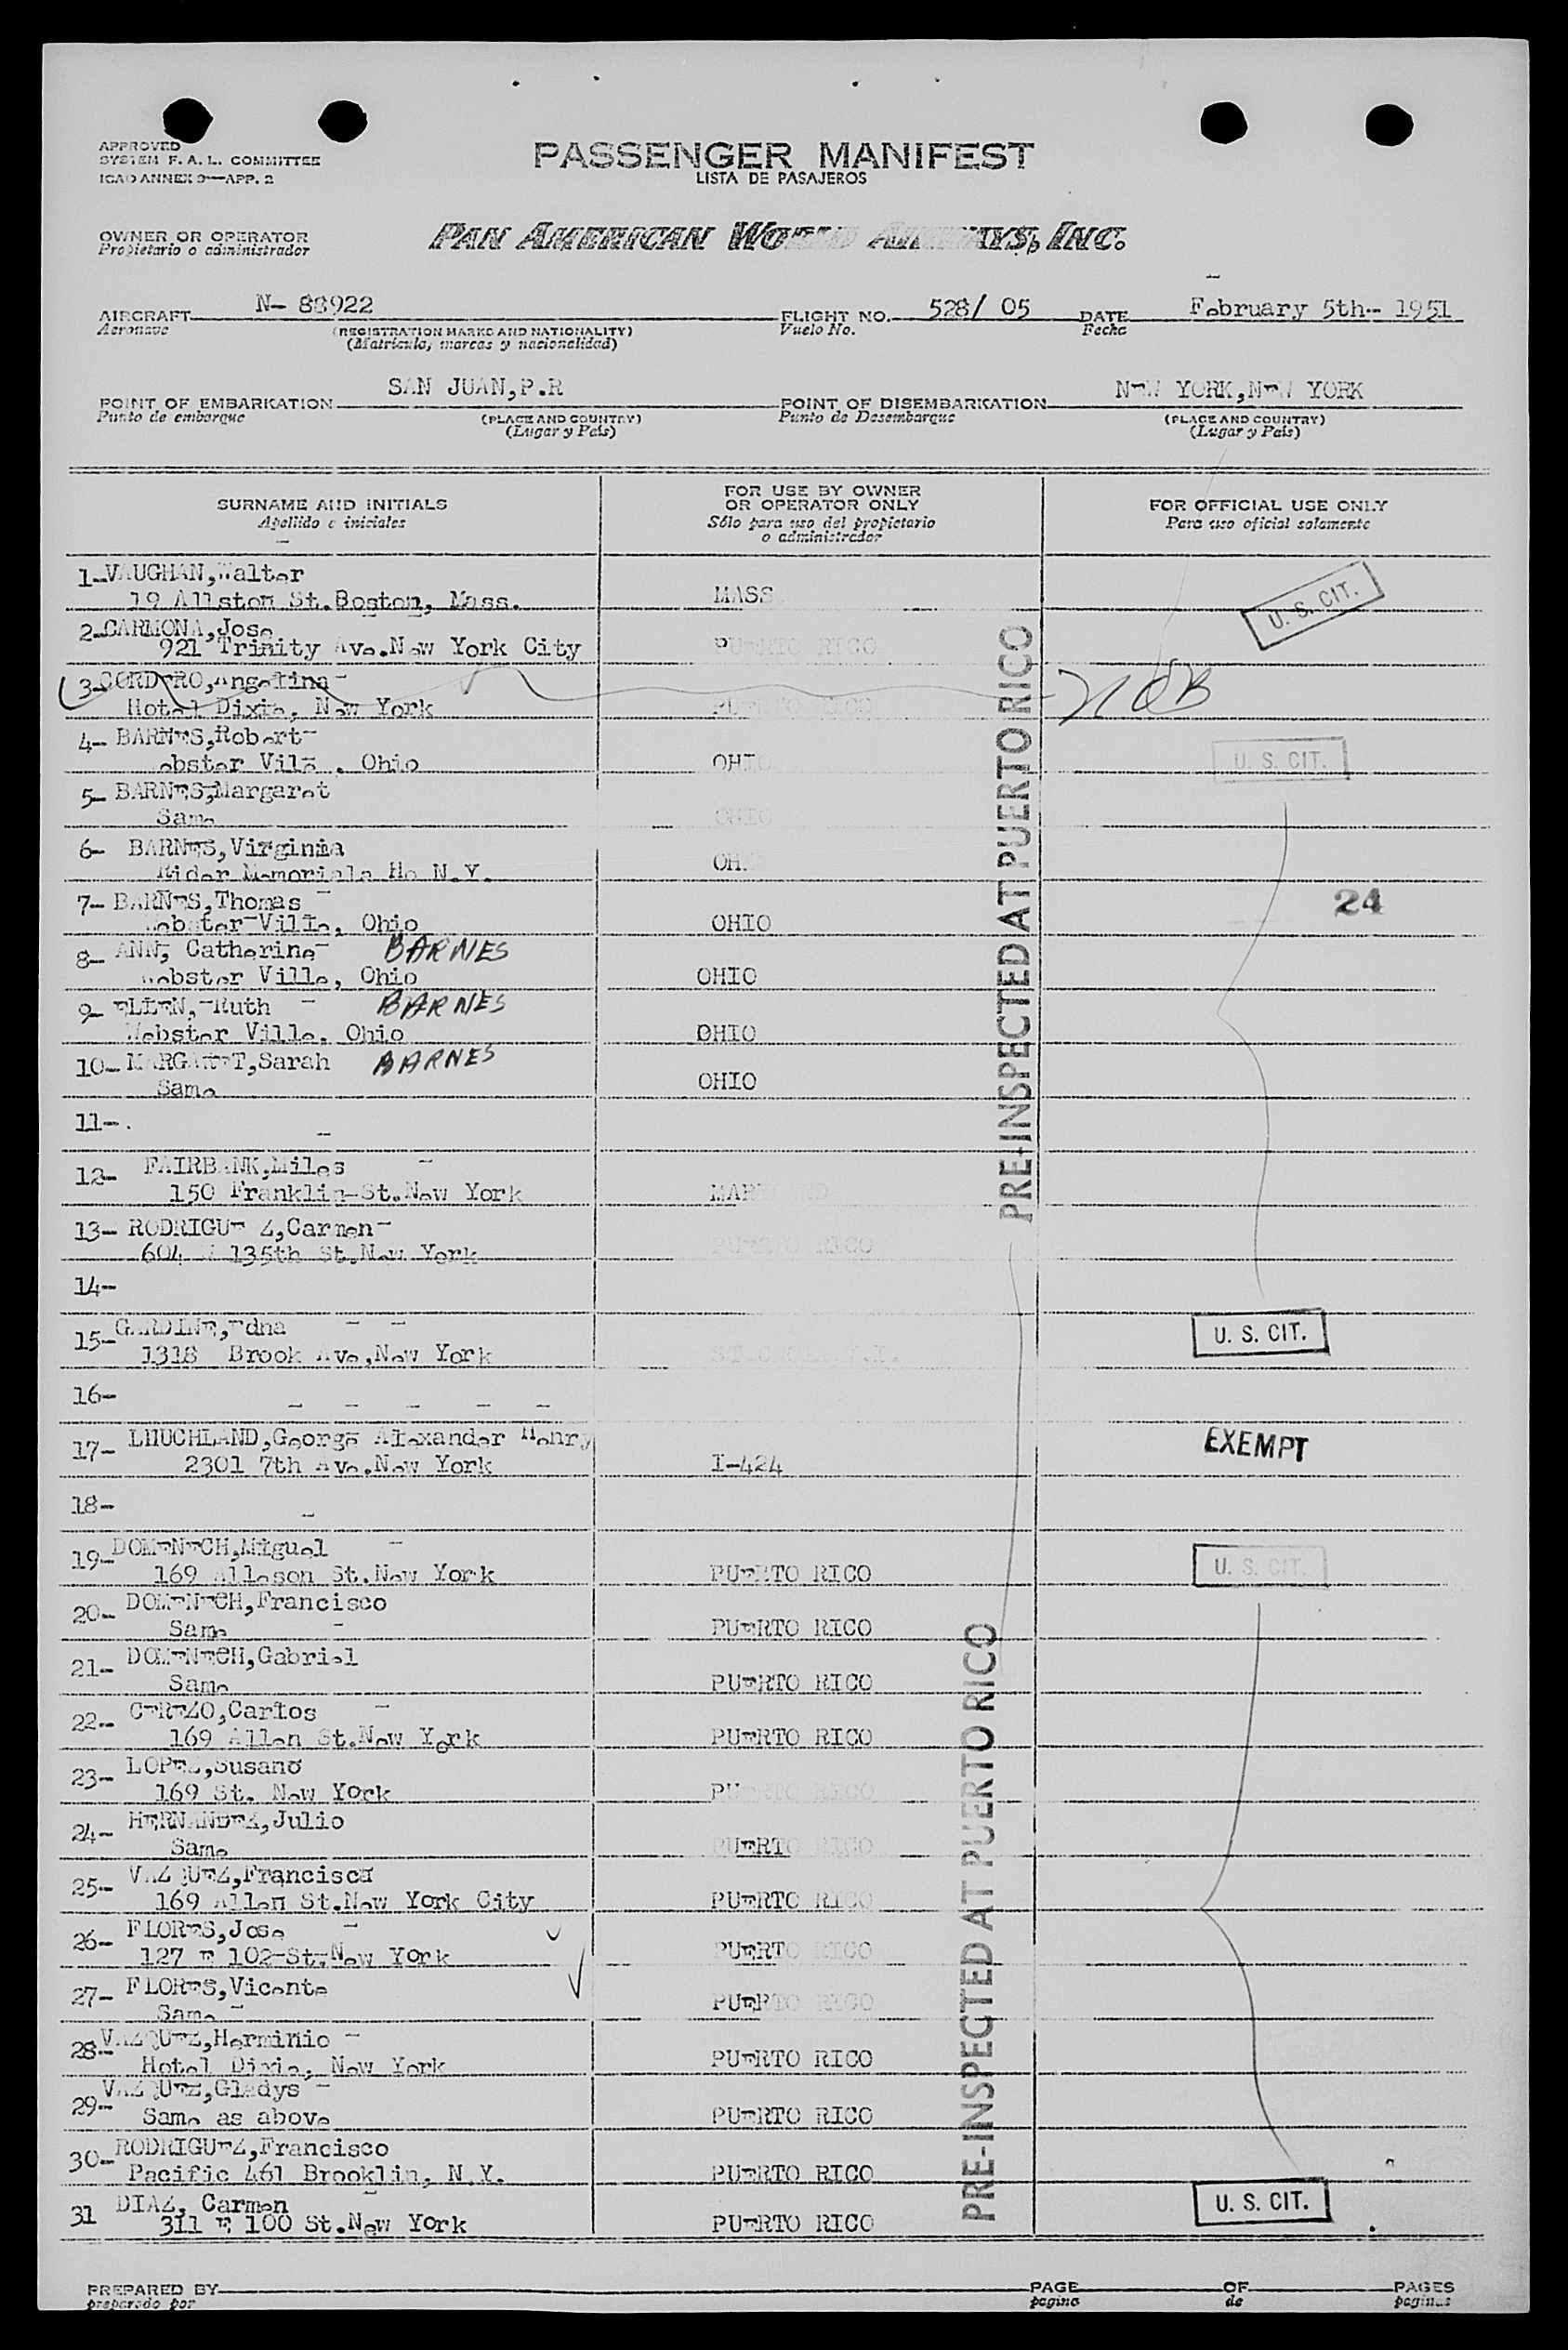 APPROVED
SYSTEM F. A. L. COMMITTEE
ICAO ANNEX 9—APP. 2
PASSENGER MANIFEST
LISTA DE PASAJEROS
OWNER OR OPERATOR
Propietario o administrador
PAN AMERICAN WORLD AIRWAYS, INC.
AIRCRAFT N- 88922 FLIGHT NO. 528/ 05 DATE February 5th-- 1951
Aeronave (REGISTRATION MARKS AND NATIONALITY) Vuelo No. Fecha
(Matrícula, marcas y nacionalidad)
POINT OF EMBARKATION SAN JUAN,P.R POINT OF DISEMBARKATION NEW YORK,NEW YORK
Punto de embarque (PLACE AND COUNTRY) Punto de Desembarque (PLACE AND COUNTRY)
(Lugar y País) (Lugar y País)
SURNAME AND INITIALS
Apellido e iniciales
FOR USE BY OWNER
OR OPERATOR ONLY
Sólo para uso del propietario
o administrador
FOR OFFICIAL USE ONLY
Para uso oficial solamente
1-VAUGHAN,Walter
19 Allston St.Boston, Mass. MASS U. S. CIT.
2-CARMONA,Jose
921 Trinity Ave.New York City PUERTO RICO
3-CORDERO,Angelina
Hotel Dixie, New York PUERTO RICO NOB
4- BARNES,Robert
Webster Ville, Ohio OHIO U. S. CIT.
5- BARNES,Margaret
Same OHIO
6- BARNES,Virginia
Rider Memoriale Ho N.Y. OH.
7- BARNES,Thomas 24
Webster Ville, Ohio OHIO
8- ANN, Catherine BARNES
Webster Ville, Ohio OHIO
9- ELLEN, Ruth BARNES
Webster Ville, Ohio OHIO
10- MARGARET,Sarah BARNES
Same OHIO
11-.
12- FAIRBANK,Miles
150 Franklin St.New York MARYLAND
13- RODRIGUEZ,Carmen
604 W 135th St.New York PUERTO RICO
14-
15- GARDINE,Edna U. S. CIT.
1318 Brook Ave,New York ST.CROIX V.I.
16-
17- LHUCHLAND,George Alexander Henry EXEMPT
2301 7th Ave.New York I-424
18-
19-DOMENECH,Miguel U. S. CIT.
169 Alleson St.New York PUERTO RICO
20- DOMENECH,Francisco
Same PUERTO RICO
21- DOMENECH,Gabriel
Same PUERTO RICO
22-- CEREZO,Carlos
169 Allen St.New York PUERTO RICO
23-- LOPEZ,Susano
169 St. New York PUERTO RICO
24- HERNANDEZ,Julio
Same PUERTO RICO
25-- VAZQUEZ,Francisca
169 Allen St.New York City PUERTO RICO
26- FLORES,Jose
127 E 102 St.New York PUERTO RICO
27- FLORES,Vicente
Same PUERTO RICO
28--VAZQUEZ,Herminio
Hotel Dixie, New York PUERTO RICO
29-- VAZQUEZ,Gladys
Same as above PUERTO RICO
30--RODRIGUEZ,Francisco
Pacific 461 Brooklin, N.Y. PUERTO RICO
31 DIAZ, Carmen U. S. CIT.
311 E 100 St.New York PUERTO RICO
PRE-INSPECTED AT PUERTO RICO
PRE-INSPECTED AT PUERTO RICO
PREPARED BY PAGE OF PAGES
preparado por pagina de paginas